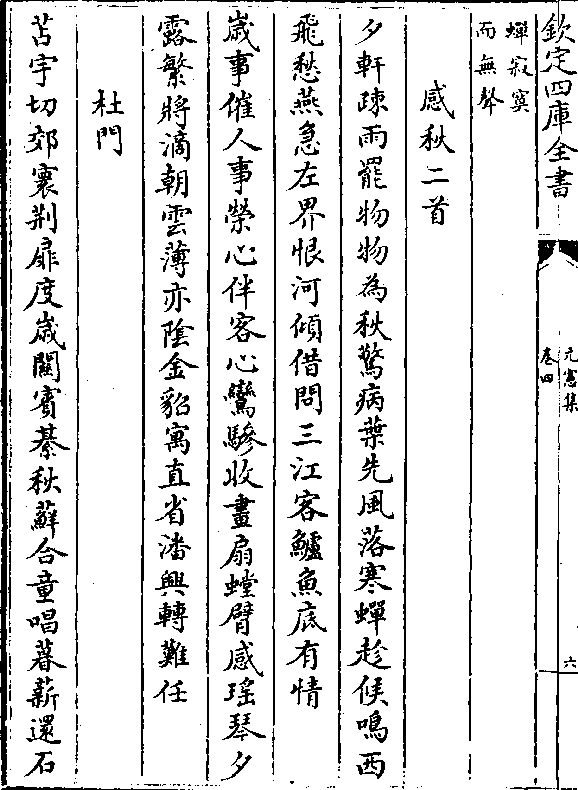 欽定四庫全書
元憲集
卷四
六
蟬寂寞
而無聲
感秋二首
夕軒疎雨罷物物為秋驚病葉先風落寒蟬趁候鳴西
飛愁燕急左界恨河傾借問三江客鱸魚底有情
歲事催人事榮心伴客心鸞驂收畫扇螳臂感瑤琴夕
露繁將滴朝雲薄亦陰金貂寓直省潘興轉難任
杜門
苫宇切郊寰荆扉度歲關賓綦秋蘚合童唱暮薪還石